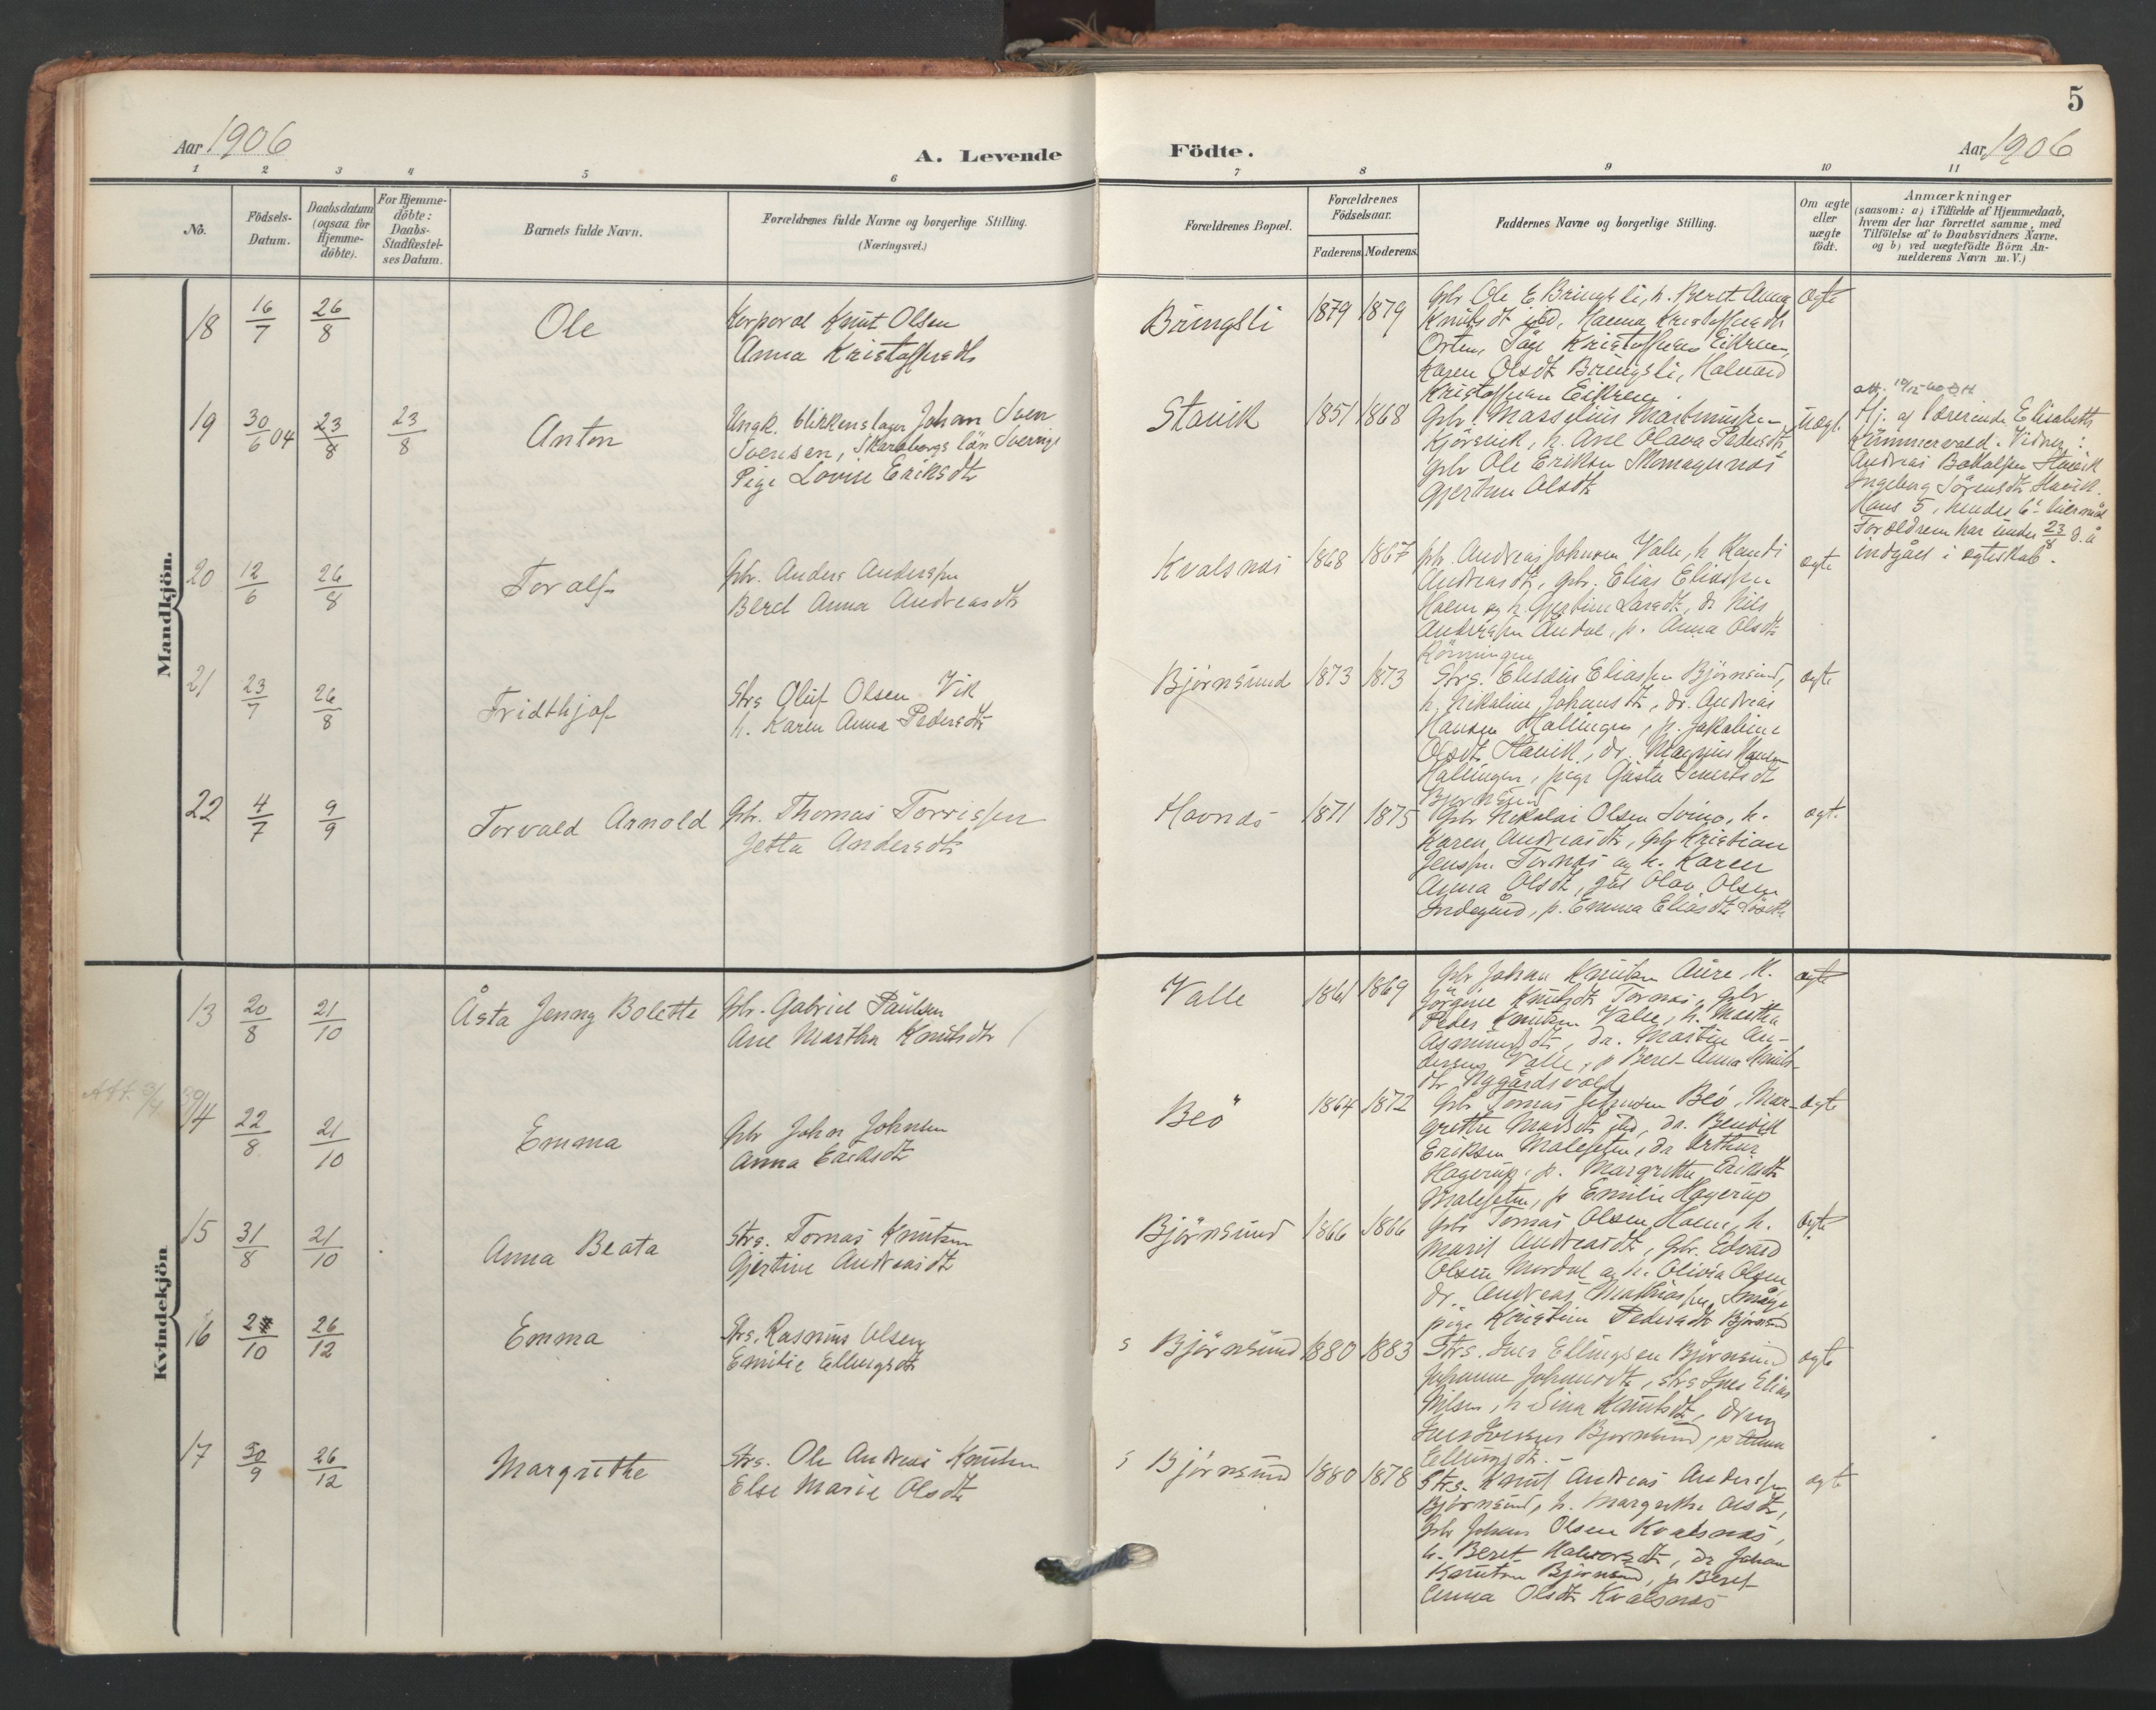 5
Aar 1906
A. Levende
Födte.
Aar 1906
1 2 3 4 5 6 7 8 9 10 11
No.
Födsels-
Datum.
Daabsdatum
(ogsaa for
Hjemme-
döbte).
For Hjemme-
döbte:
Daabs-
Stadfæstel-
ses Datum.
Barnets fulde Navn.
Forældrenes fulde Navne og borgerlige Stilling.
(Næringsvei.)
Forældrenes Bopæl.
Forældrenes
Födselsaar.
Faderens. Moderens.
Faddernes Navne og borgerlige Stilling.
Om ægte
eller
uægte
födt.
Anmærkninger
(saasom: a) i Tilfælde af Hjemmedaab,
hvem der har forrettet samme, med
Tilföielse af to Daabsvidners Navne,
og b) ved uægtefödte Börn An-
melderens Navn m. V.)
Mandkjön.
18
16/7
26/8
Ole
Korporal Knut Olsen
Anna Kristoffersdtr
Bringsli
1879 1879
Gbr Ole E Bringsli, h. Beret Anna
Knutsdt ibd, Hanna Kristoffersdtr
Orten, Tåge Kristoffersen Eikrem,
Karen Olsdt Bringsli, Halvard
Kristoffersen Eikrem
ægte
19
30/6 04
23/8
23/8
Anton
Ungk. blikkenslager Johan Sven
Svensen, Skaraborgs län Sverige
Pige Lovise Eriksdtr
Stavik
1851 1868
Gbr. Marselius Martinussen
Kjörsvik, h. Ane Olava Pedersdtr
Gbr Ole Eriksen Skomagernæs
Gjertine Olsdtr
uægt.
Hj. af lærerinde Elisabeth
Römmervald. Vidner:
Andreas Stavik
Ingeborg Sörensdtr Stavik.
Hans 5, hendes 6
Forældrene har under 23/8 d. å
indgået i ægteskab.
20
12/6
26/8
Toralf
Gbr. Anders Anderssen
Beret Anna Andreasdtr
Kvalsnæs
1868 1867
Gbr. Andreas Johnsen Valle, h Randi
Andreasdtr, gbr. Elias Eliassen
Malen og h. Gjertine Larsdtr, dr Nils
Anderssen Aandal, p. Anna Olsdtr
Rönningen
ægte
21
23/7
26/8
Fridthjof
Strs Oluf Olsen Vik
h. Karen Anna Pedersdtr
Björnsund
1873 1873
Strs. Elisæus Eliassen Björnsund,
h. Nikoline Johansdtr, dr. Andreas
Hansen Hallingen, p. Jakobine
Olsdtr Stavik, dr. Magnus Hansen
Hallingen, pige Gusta
Björnsund
ægte
22
4/7
9/9
Torvald Arnold
Gbr. Thomas Torrissen
Jetta Andersdtr
Havnæs
1871 1875
Gbr Nikolai Olsen Svinö, h.
Karen Andreasdtr, gbr Kristian
Jenssen Tornæs og h. Karen
Anna Olsdt, gås Olav Olsen
Indegård, p. Emma Eliasdtr
ægt.
Kvindekjön
13
20/8
21/10
Åsta Jenny Bolette
Gbr. Gabriel Paulsen
Ane Martha Knutsdtr
Valle
1861 1869
Gbr Johan Knutsen Aure, h.
Jörgine Knutsdtr Tornæs, gbr
Peder Knutsen Valle, h. Martha
Asmundsdt, dr. Martin An-
dersen Valle, p Beret Anna Knuts-
dtr Nygårdsvold
ægte
14
22/8
21/10
Emma
Gbr John Johnsen
Anna Eriksdtr
Beö
1864 1872
Gbr Tomas Johnsen Beö, Mar-
grethe Madsdt ibd, dr. Benvik
Eriksen Malesæter, dr Arthur
Hagerup, p. Margrethe Eriksdt
Malesæter, p Emilie Hagerup
ægte
15
31/8
21/10
Anna Beata
Strs. Tomas Knutsen
Gjertine Andreasdtr
Björnsund
1866 1866
Gbr Tomas Olsen Malen, h.
Marit Andreasdtr, Gbr. Edvard
Olsen Mordal og h. Olivia Olsen
dr. Andreas Mathiassen Småge
pige Kristine Pedersdtr Björnsund
ægte
16
/10
26/12
Emma
Strs. Rasmus Olsen
Emilie Ellingsdtr
s Björnsund
1880 1883
Strs. Iver Ellingsen Björnsund
Johanne Johansdtr, strs Iver Elias
Nilsen, h Sina Knutsdtr, dreng
Iver Iversen Björnsund, p Anna
Ellingsdt. -
ægte
17
30/9
26/12
Margrethe
Strs. Ole Andreas Knutsen
Else Marie Olsdtr
s Björnsund
1880 1878
Strs. Knut Andreas Anderssen
Björnsund, h. Margrethe Olsdtr,
Gbr Johan Olsen Kvalsnæs,
h. Beret Halvorsdtr, dr Johan
Knutsen Björnsund, p Beret
Anna Olsdtr Kvalsnæs
ægte